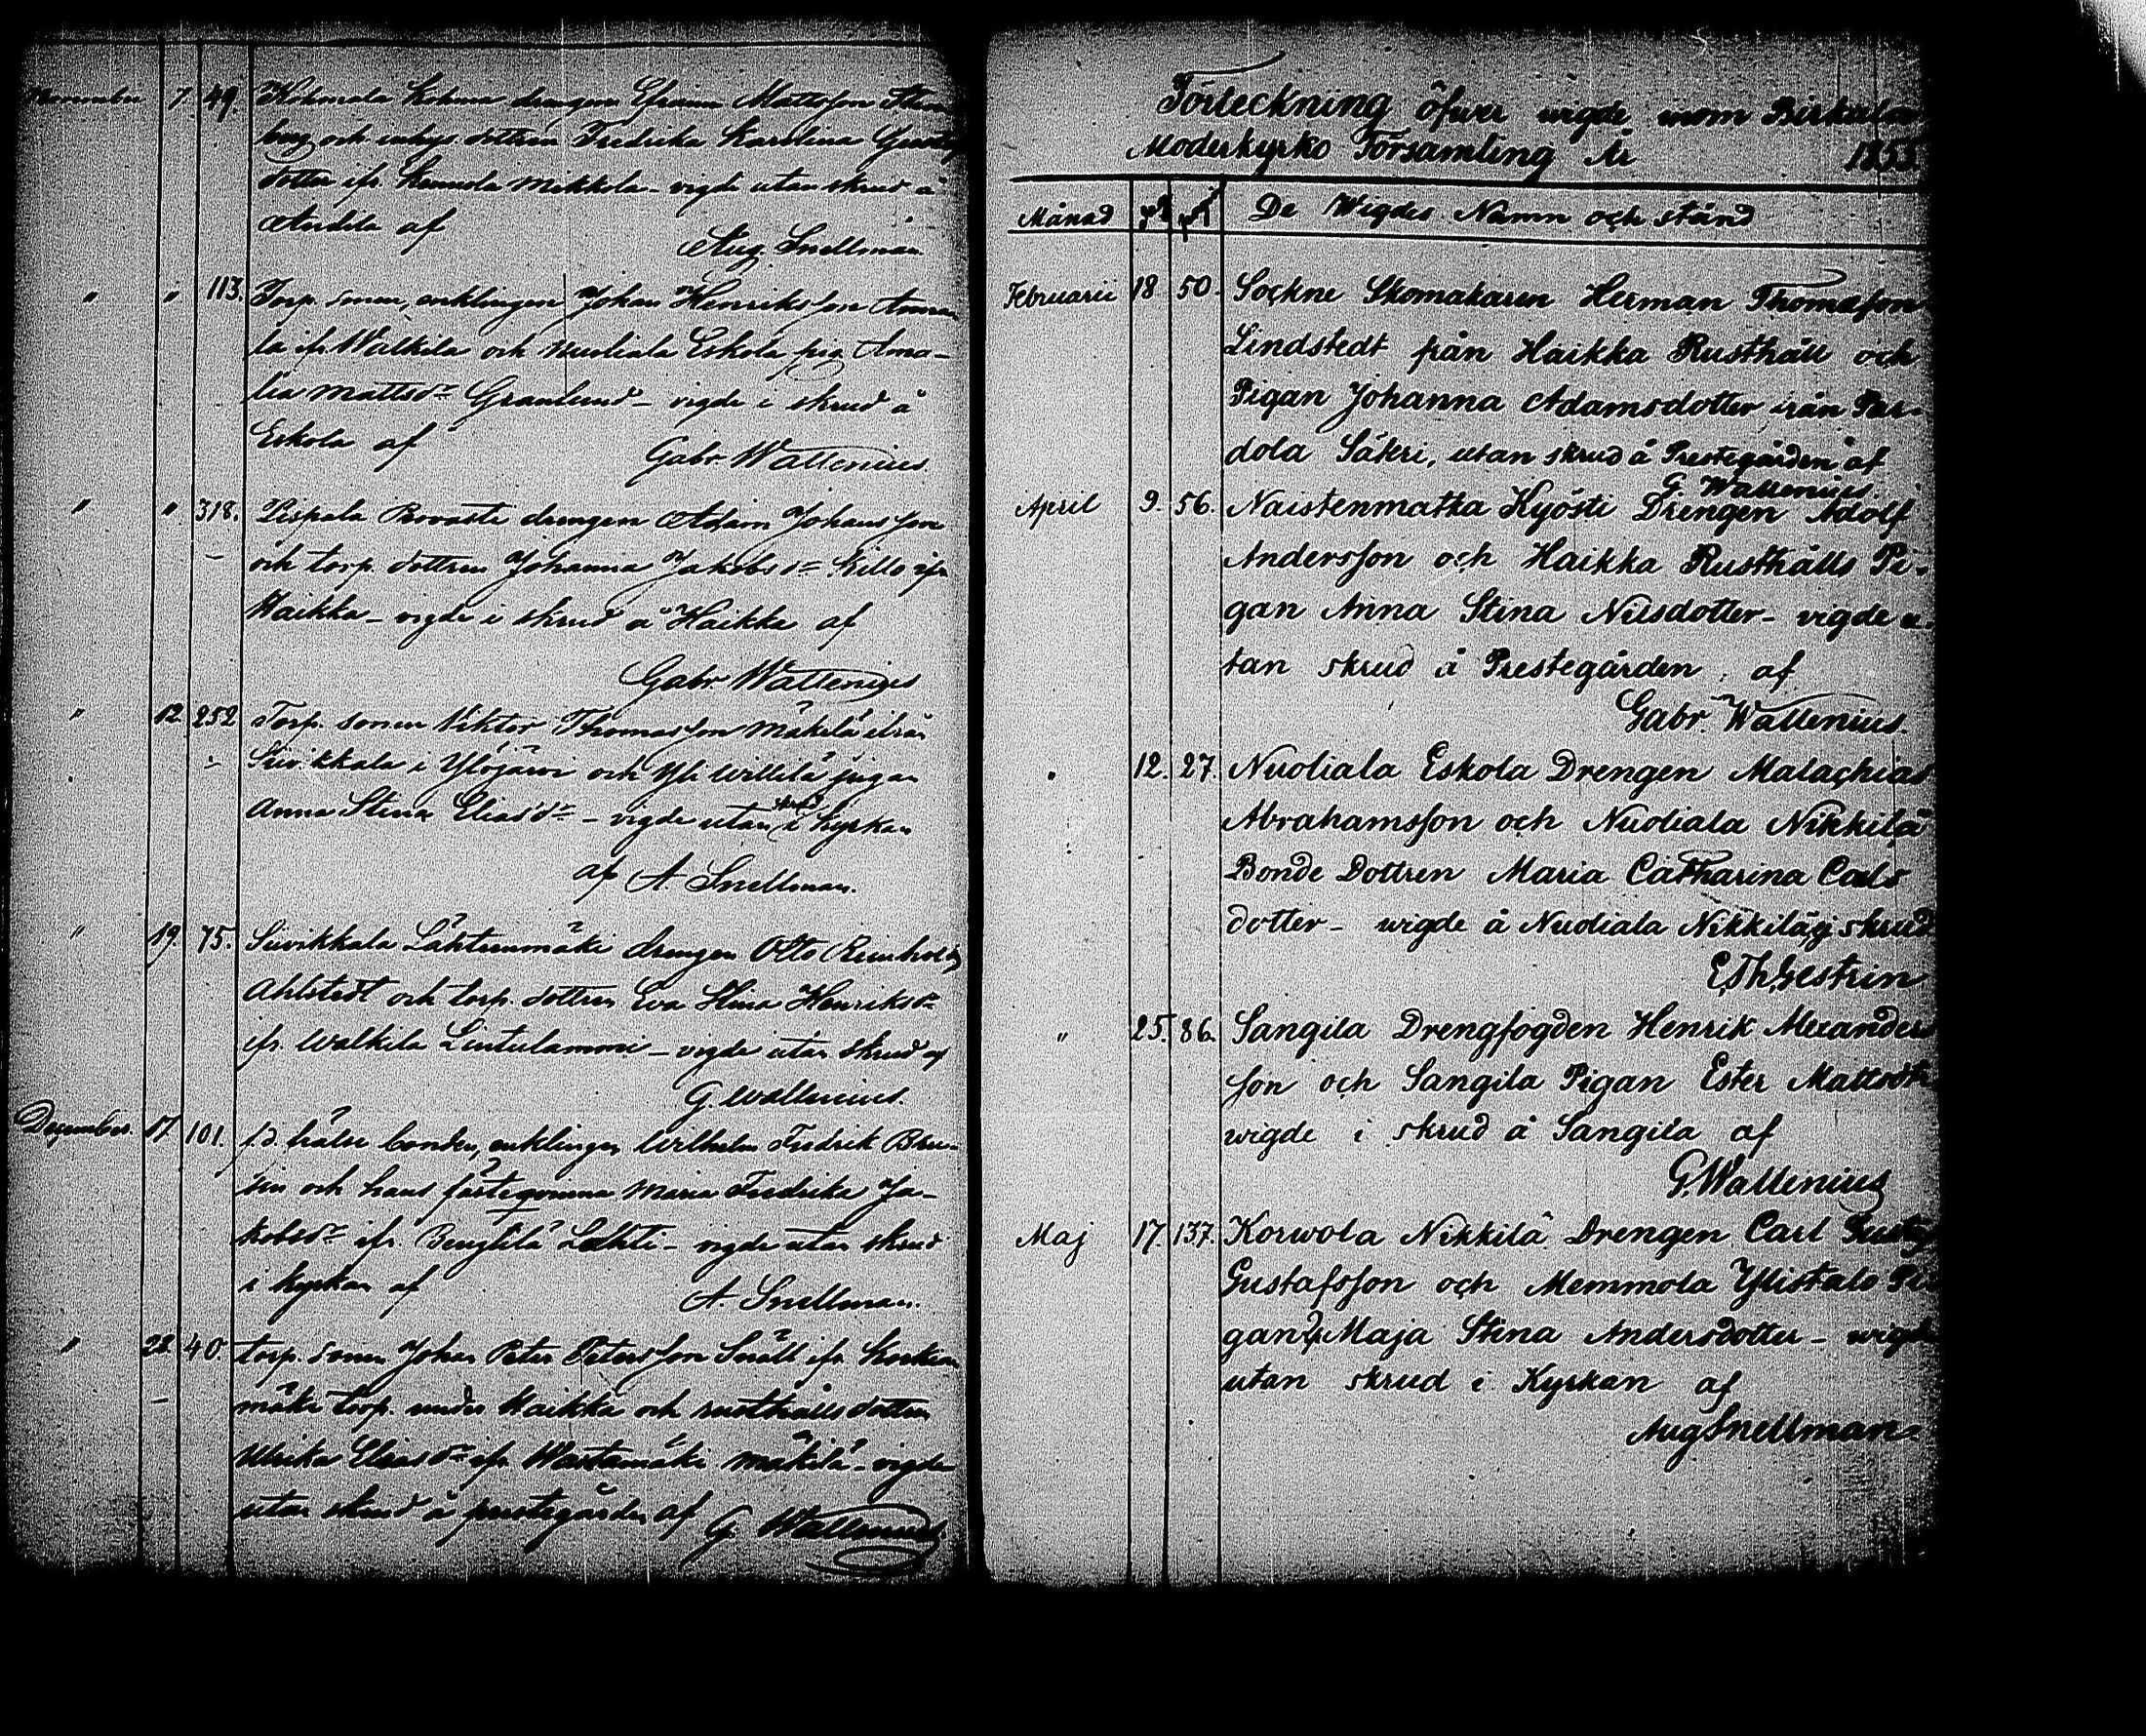 November 7. 49. Efraim Mattsson
och inhys. dottren Fredrika Karolina
dotter ifr. Mikkola - vigde utan skrud å
Anttila af Aug. Snellman.
" " 113. Torp. sonen, enklingen Johan Henriksson
ifr. Walkila och Nuoliala Eskola pig. Ama-
lia Mattsdr Granlund - vigde i skrud å
Eskola af Gabr. Wallenius.
" " 318. Pispala Provasti drengen Adam Johansson
och torp. dottren Johanna Jakobsdr Killo ifr
Haikka - vigde i skrud å Haikka af
Gabr. Wallenius
" 12. 252 Torp. sonen Viktor Thomasson Mäkelä ifrån
Siivikkala i Ylöjärvi och Yli Willilä pigan
Anna Stina Eliasdr - vigde utan skrud i kyrkan
af A. Snellman.
" 19. 75. Siivikkala Lähteenmäki drengen Otto Reinhold
Ahlstedt och torp. dottren Eva Stina Henriksdr
ifr. Walkila Lintulammi - vigde utan skrud af
G. Wallenius.
December. 17. 101. f.d. bonden, enklingen Wilhelm Fredrik
och hans fästeqvinna Maria Fredrika Ja-
kobsdr ifr. Bengtilä Lahti - vigde utan skrud
i kyrkan af A. Snellman.
" 28. 40. torp. sonen Johan Peter Petersson Snäll ifr.
mäki torp. under Haikka och rusthålls dottren
Ulrika Eliasdr ifr. Wastamäki Mäkilä - vigde
utan skrud å prestegården af G. Wallenius.
Förteckning öfwer wigde inom Birkala
Moderkyrko Församling År 1855
Månad De Wigdes Namn och stånd
Februarii 18 50. Sockne Skomakaren Herman Thomasson
Lindstedt från Haikka Rusthåll och
Pigan Johanna Adamsdotter från Par-
dola Säteri, utan skrud å Prestegården af
G. Wallenius.
April 9. 56. Naistenmatka Kyösti Drengen Adolf
Andersson och Haikka Rusthålls Pi-
gan Anna Stina Nilsdotter - vigde u-
tan skrud å Prestegården af
Gabr. Wallenius.
" 12. 27. Nuoliala Eskola Drengen Malachias
Abrahamsson och Nuoliala Nikkilä
Bonde Dottren Maria Catharina Carls
dotter - wigde å Nuoliala Nikkilä, i skrud
E. Th. Gestrin
" 25. 86. Sangila Drengfogden Henrik Alexanders
son och Sangila Pigan Ester Mattsdtr
wigde i skrud å Sangila af
G. Wallenius
Maj 17. 137. Korwola Nikkilä Drengen Carl Gustaf
Gustafsson och Memmola Ylistalo Pi
gan Maja Stina Andersdotter - wigde
utan skrud i Kyrkan af
Aug Snellman